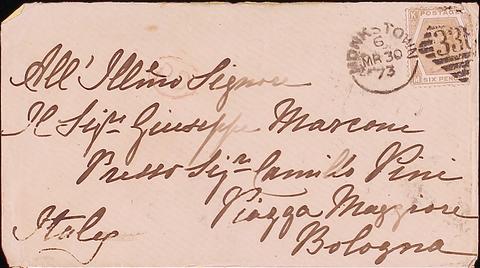 MONKSTOWN
6
MR 30
73
POSTAGE
K
SIX PEN
All' Illmo Signore
Il Sigr. Giuseppe Marconi
Presso Sigr. Camillo Pini
Piazza Maggiore
Bologna
Italy